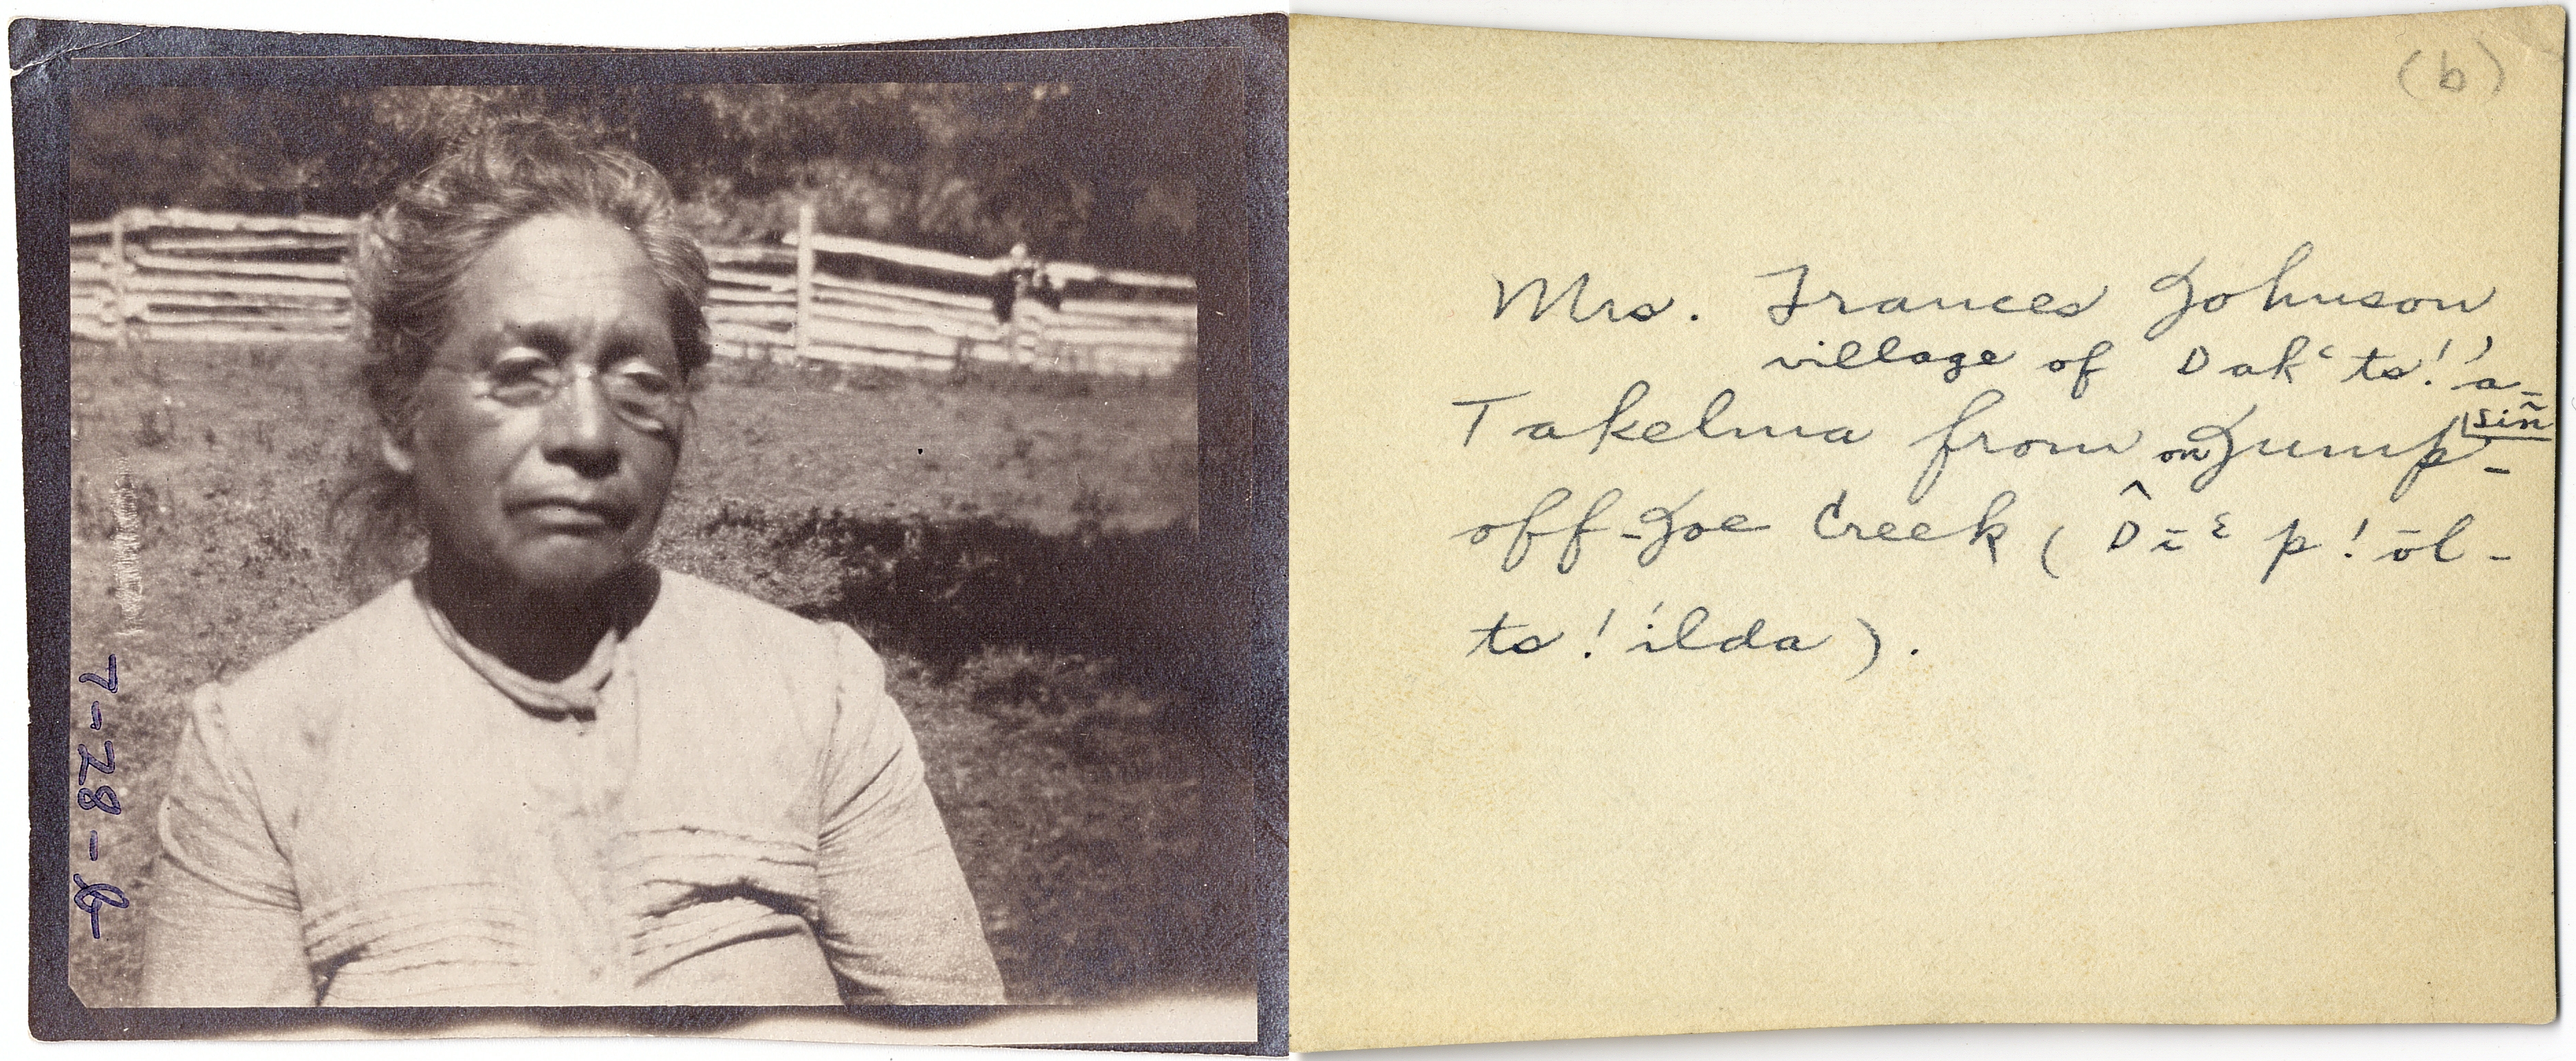 7-28-6
(b)
Mrs. Frances Johnson
village of Dak‘ts!'a-
siñ
Takelma from on Jump-
off-Joe Creek (D̂ī ᵋ p! ōl-
ts! ílda).